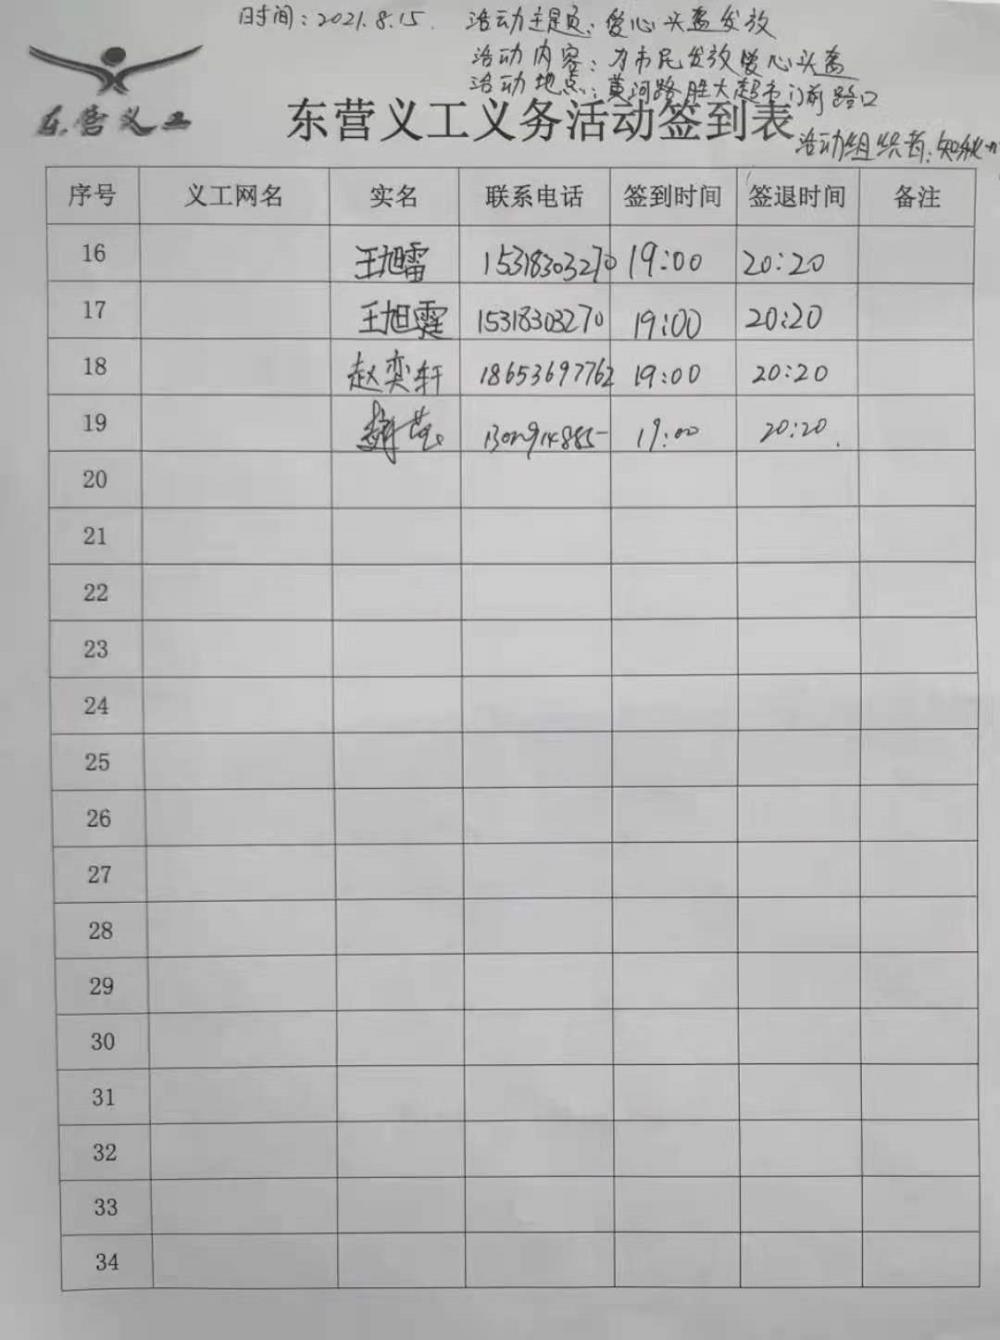 时间：2021.8.15. 活动主题：爱心头盔发放
活动内容：为市民发放爱心头盔
活动地点：黄河路胜大超市门前路口
东营义工
东营义工义务活动签到表
活动组织者：知秋一
序号 义工网名 实名 联系电话 签到时间 签退时间 备注
16 王旭雷 15318303270 19:00 20:20
17 王旭霆 15318303270 19:00 20:20
18 赵奕轩 18653697762 19:00 20:20
19 19:00 20:20.
20
21
22
23
24
25
26
27
28
29
30
31
32
33
34